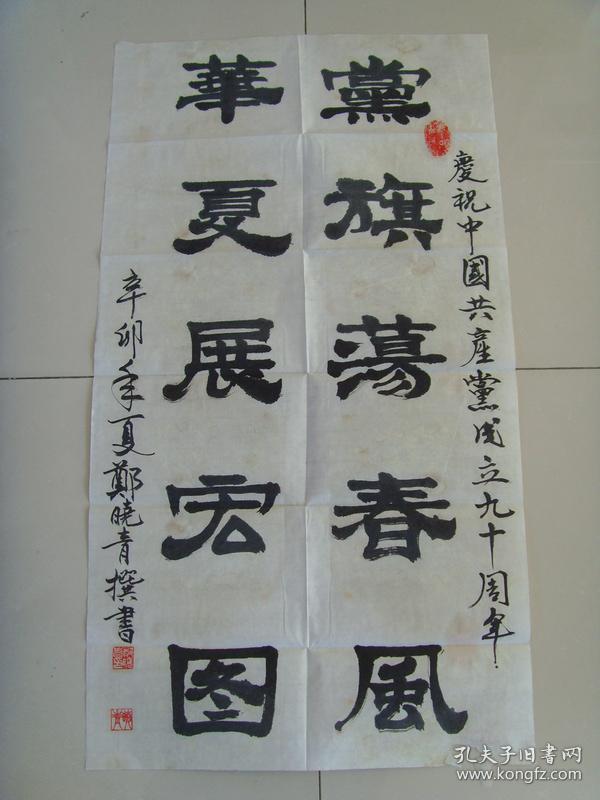 慶祝中國共產黨成立九十周年
黨旗蕩春風
華夏展宏图
辛卯年夏鄭曉青撰書
孔夫子旧書网
www.kongfz.com